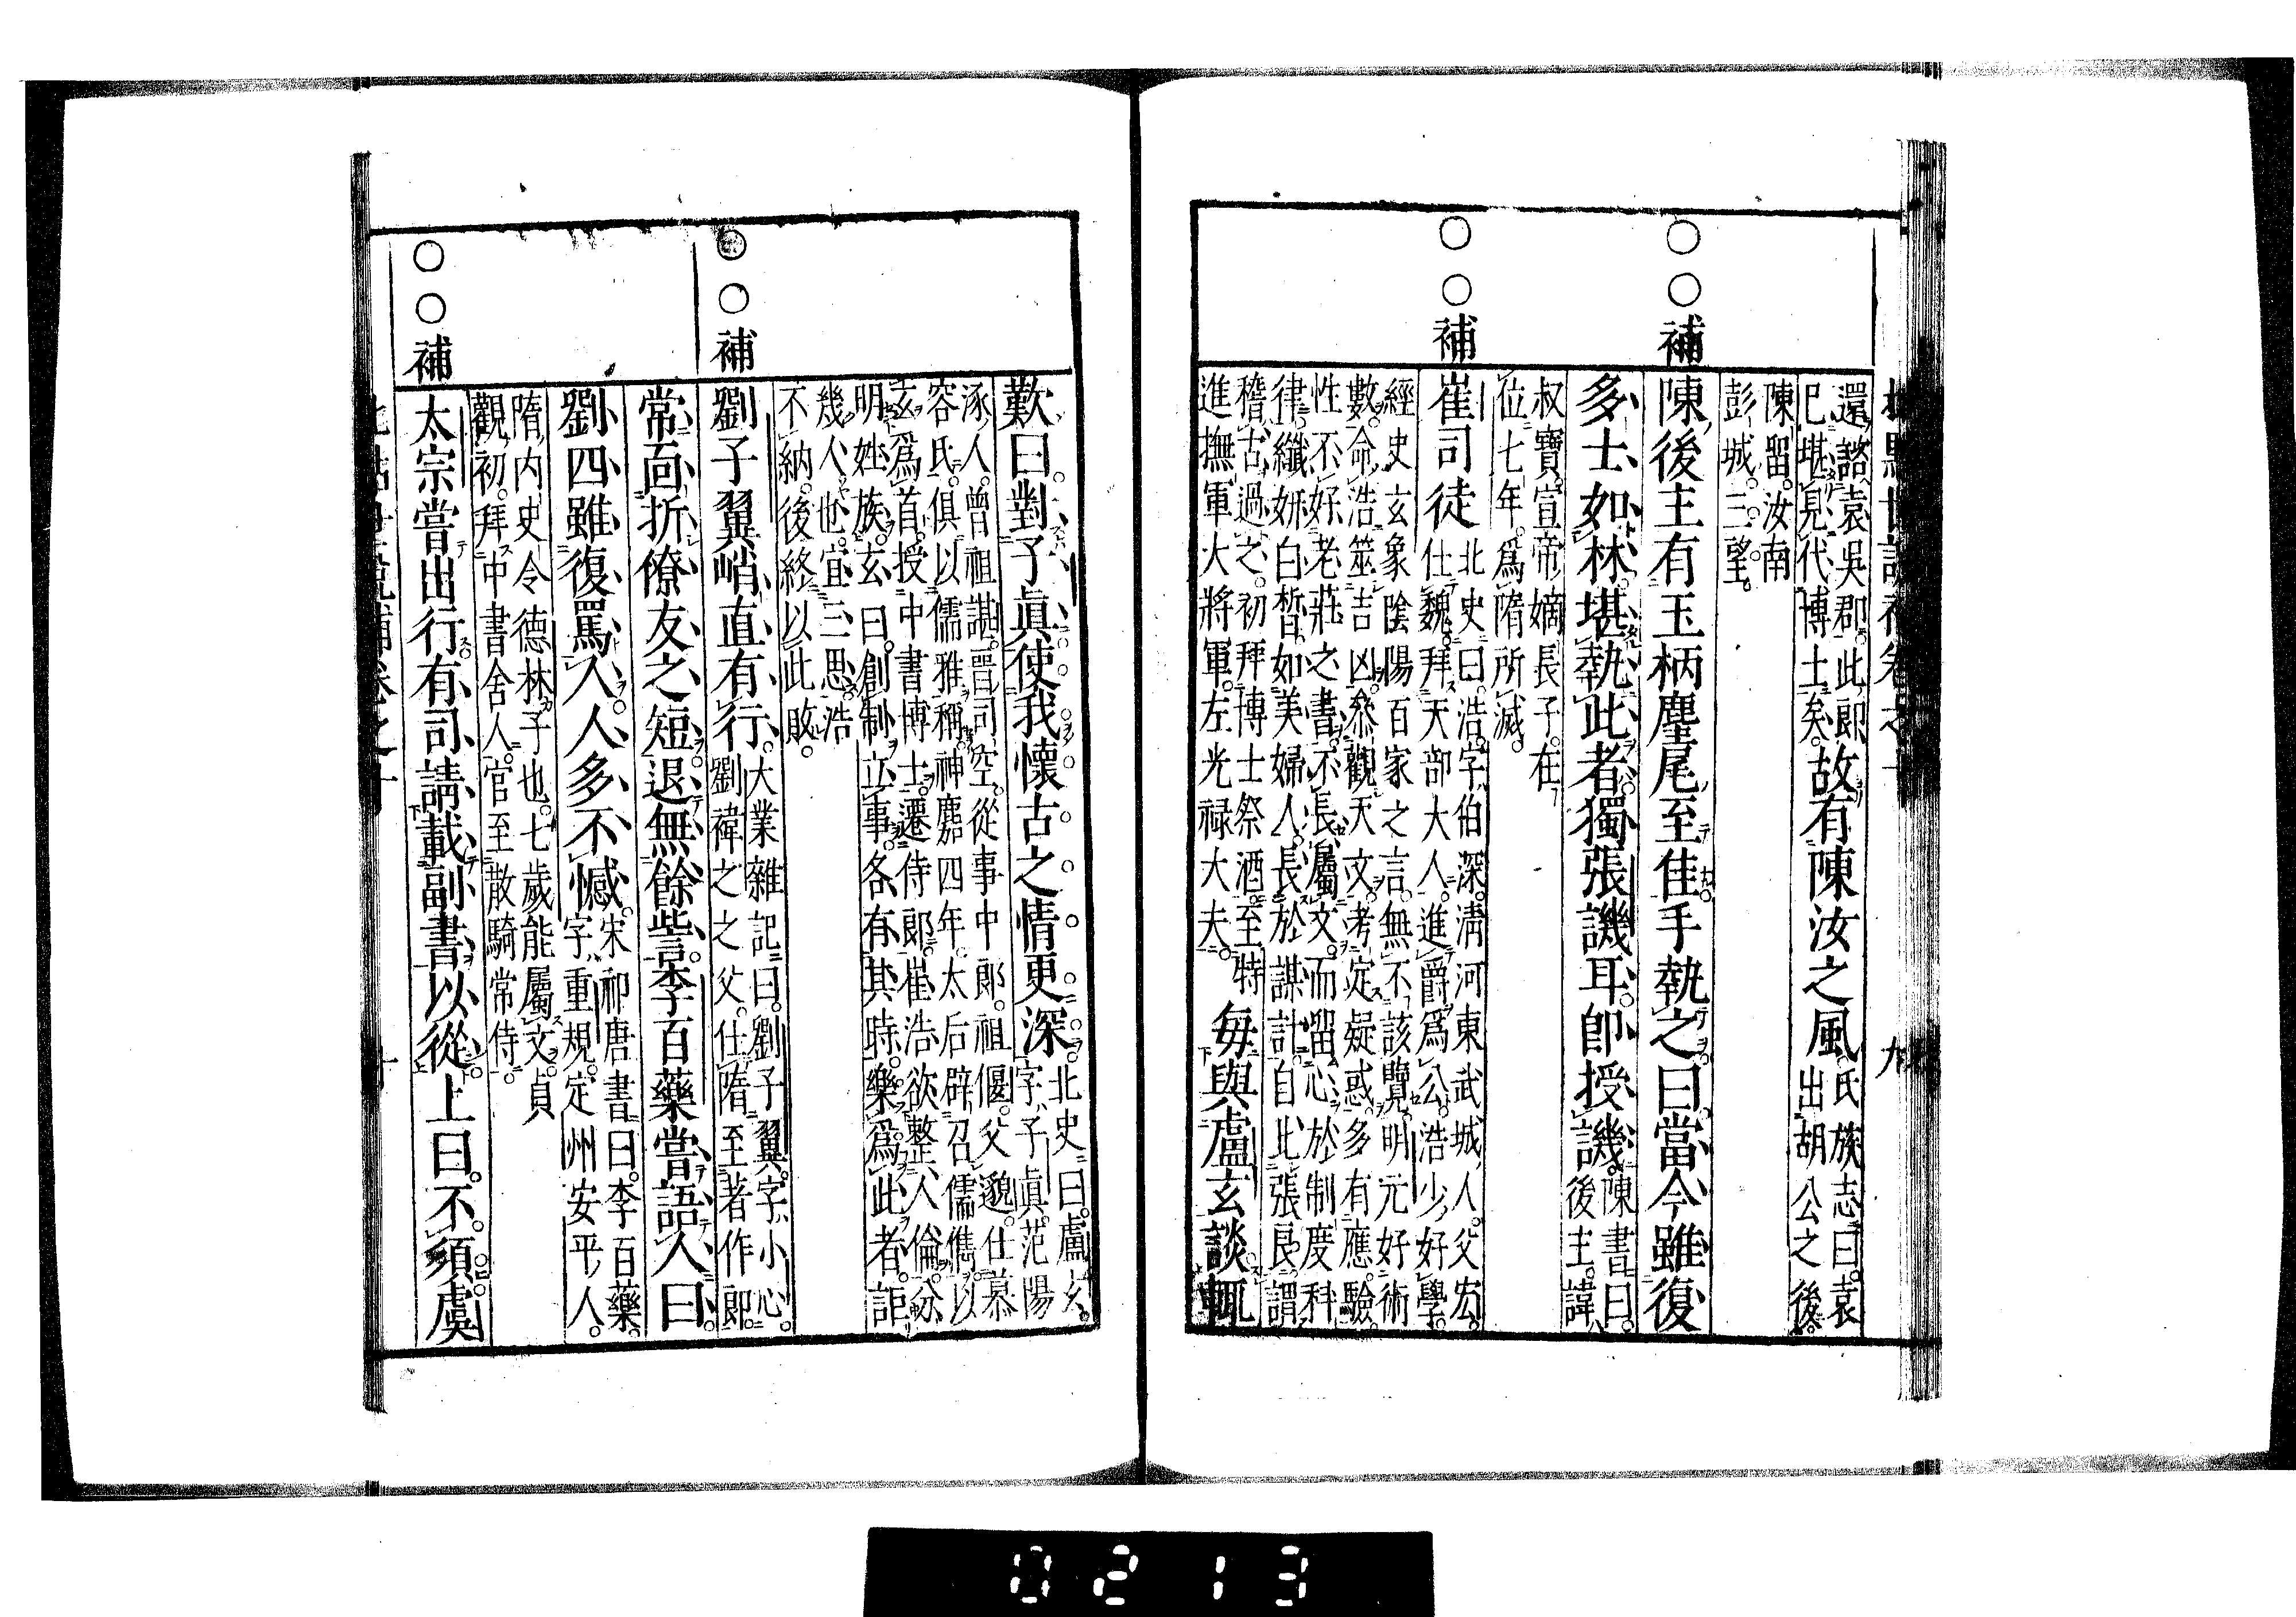 還詒袁吳郡此郎
巳堪見代博士矣
故有陳汝之風
氏族志曰袁
出胡公之後
陳留汝南
彭城三望
○○補
陳後主有玉柄麈尾至佳手執之曰當今雖復
多士如林堪執此者獨張譏耳即授譏
陳書曰
後主諱
叔寶宣帝嫡長子在
位七年爲隋所滅
○○補
崔司徒
北史曰浩字伯深淸河東武城人父宏
仕魏拜天部大人進爵爲公浩少好學
經史玄象陰陽百家之言無不該覽明元好術
數命浩筮吉凶叅觀天文考定疑惑多有應驗
性不好老莊之書不長屬文而留心於制度科
律纖姸白皙如美婦人長於謀計自比張良謂
稽古過之初拜博士祭酒至特
進撫軍大將軍左光禄大夫
每與盧玄談輒
歎曰對子眞使我懷古之情更深
北史曰盧玄
字子眞范陽
涿人曾祖諶晉司空從事中郎祖偃父邈仕慕
容氏俱以儒雅稱神䴥四年太后辟召儒儁以
玄爲首授中書博士遷侍郎崔浩欲整人倫分
明姓族玄曰創制立事各有其時樂爲此者詎
幾人也宜三思浩
不納後終以此敗
○補
劉子翼峭直有行
大業雜記曰劉子翼字小心
劉禕之之父仕隋至著作郎
常面折僚友之短退無餘訾李百藥嘗語人曰
劉四雖復罵人人多不憾
宋祁唐書曰李百藥
字重規定州安平人
隋內史令德林子也七歲能屬文貞
觀初拜中書舍人官至散騎常侍
○○補
太宗嘗出行有司請載副書以從上曰不須虞
0213